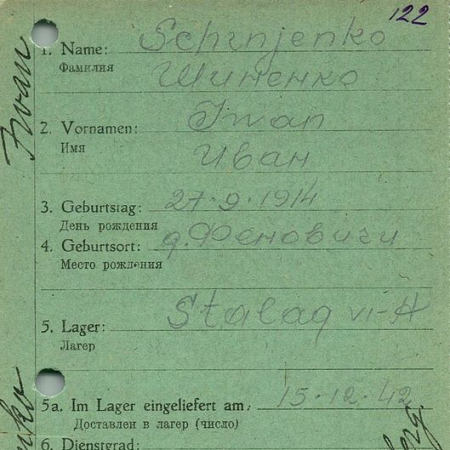 122
1. Name: Schinjenko
Фамилия Шиненко
2. Vornamen: Iwan
Имя Иван
3. Geburtstag: 27.9.1914
День рождения
4. Geburtsort: д. Феновичи
Место рождения
5. Lager: Stalag VI-A
Лагер
5a. Im Lager eingeliefert am: 15.12.42
Доставлен в лагер (число)
6. Dienstgrad:
Iwan